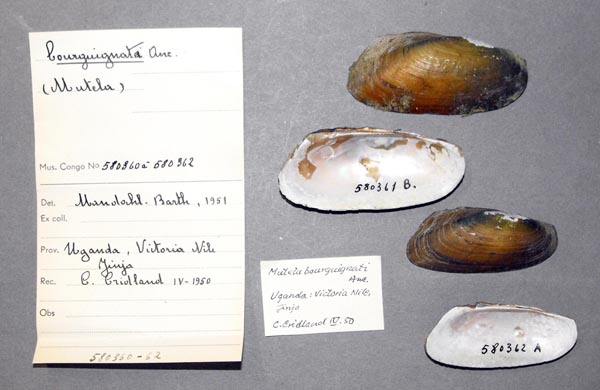 bourguignata Anc.
(Mutela)
Mus. Congo No 580360 à 580362
Det. Mandahl-Barth, 1951
Ex coll.
Prov. Uganda, Victoria Nile
Jinja
Rec. C. Cridland IV-1950
Obs
580360-62
Mutela bourguignati
Anc.
Uganda: Victoria Nile,
Jinja
C. Cridland IV.50
580361 B.
580362 A